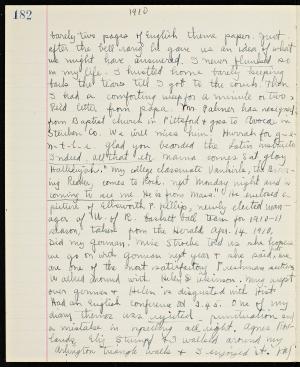 182
1910
barely two pages of English theme paper. Just
after the bell rang he gave us an idea of what
we might have answered. I never flunked so
in my life. I hustled home barely keeping
back the tears till I got to the couch. Then
I had a comforting weep for a minute or two.
Red letter from papa. Mr. Palmer has resigned
from Baptist church in Pittsford & goes to Avoca in
Steuben Co. We will miss him. Hurrah for
glad you boarded the Latin
Indeed, all that & mama comes Sat. glory
Hallelujah. My college classmate
Reader, comes to Roch. next Monday night and is
coming to see me. He is from Mass. He enclosed a
picture of Ellsworth P. Killip, newly elected man-
ager of U. of R. basket ball team for 1910-11
season, taken from the Herald Apr. 14, 1910.
Did my German. Miss Stroebe told us she hopes
we go on with German next year & she said, we
are one of the most satisfactory Freshman
Walked around with Helen & Marion. Mary wept
over German & Helen is disgusted with Hist.
Had an English conference at 3.45. One of my
diary themes was rejected. punctuation and
a mistake in spelling all right. Agnes
Elsie Stumpf & I walked around my
Arlington triangle walk & I enjoyed it.